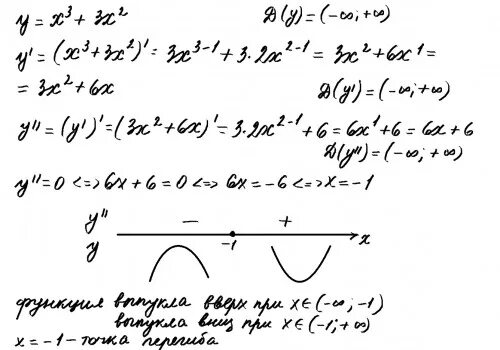 y = x³ + 3x² D(y) = (-∞; +∞)
y' = (x³ + 3x²)' = 3x³⁻¹ + 3·2x²⁻¹ = 3x² + 6x¹ =
= 3x² + 6x D(y') = (-∞; +∞)
y'' = (y')' = (3x² + 6x)' = 3·2x²⁻¹ + 6 = 6x¹ + 6 = 6x + 6
D(y'') = (-∞; +∞)
y'' = 0 <=> 6x + 6 = 0 <=> 6x = -6 <=> x = -1
y'' - +
y -1 x
функция выпукла вверх при x∈(-∞; -1)
выпукла вниз при x∈(-1; +∞)
x = -1 - точка перегиба